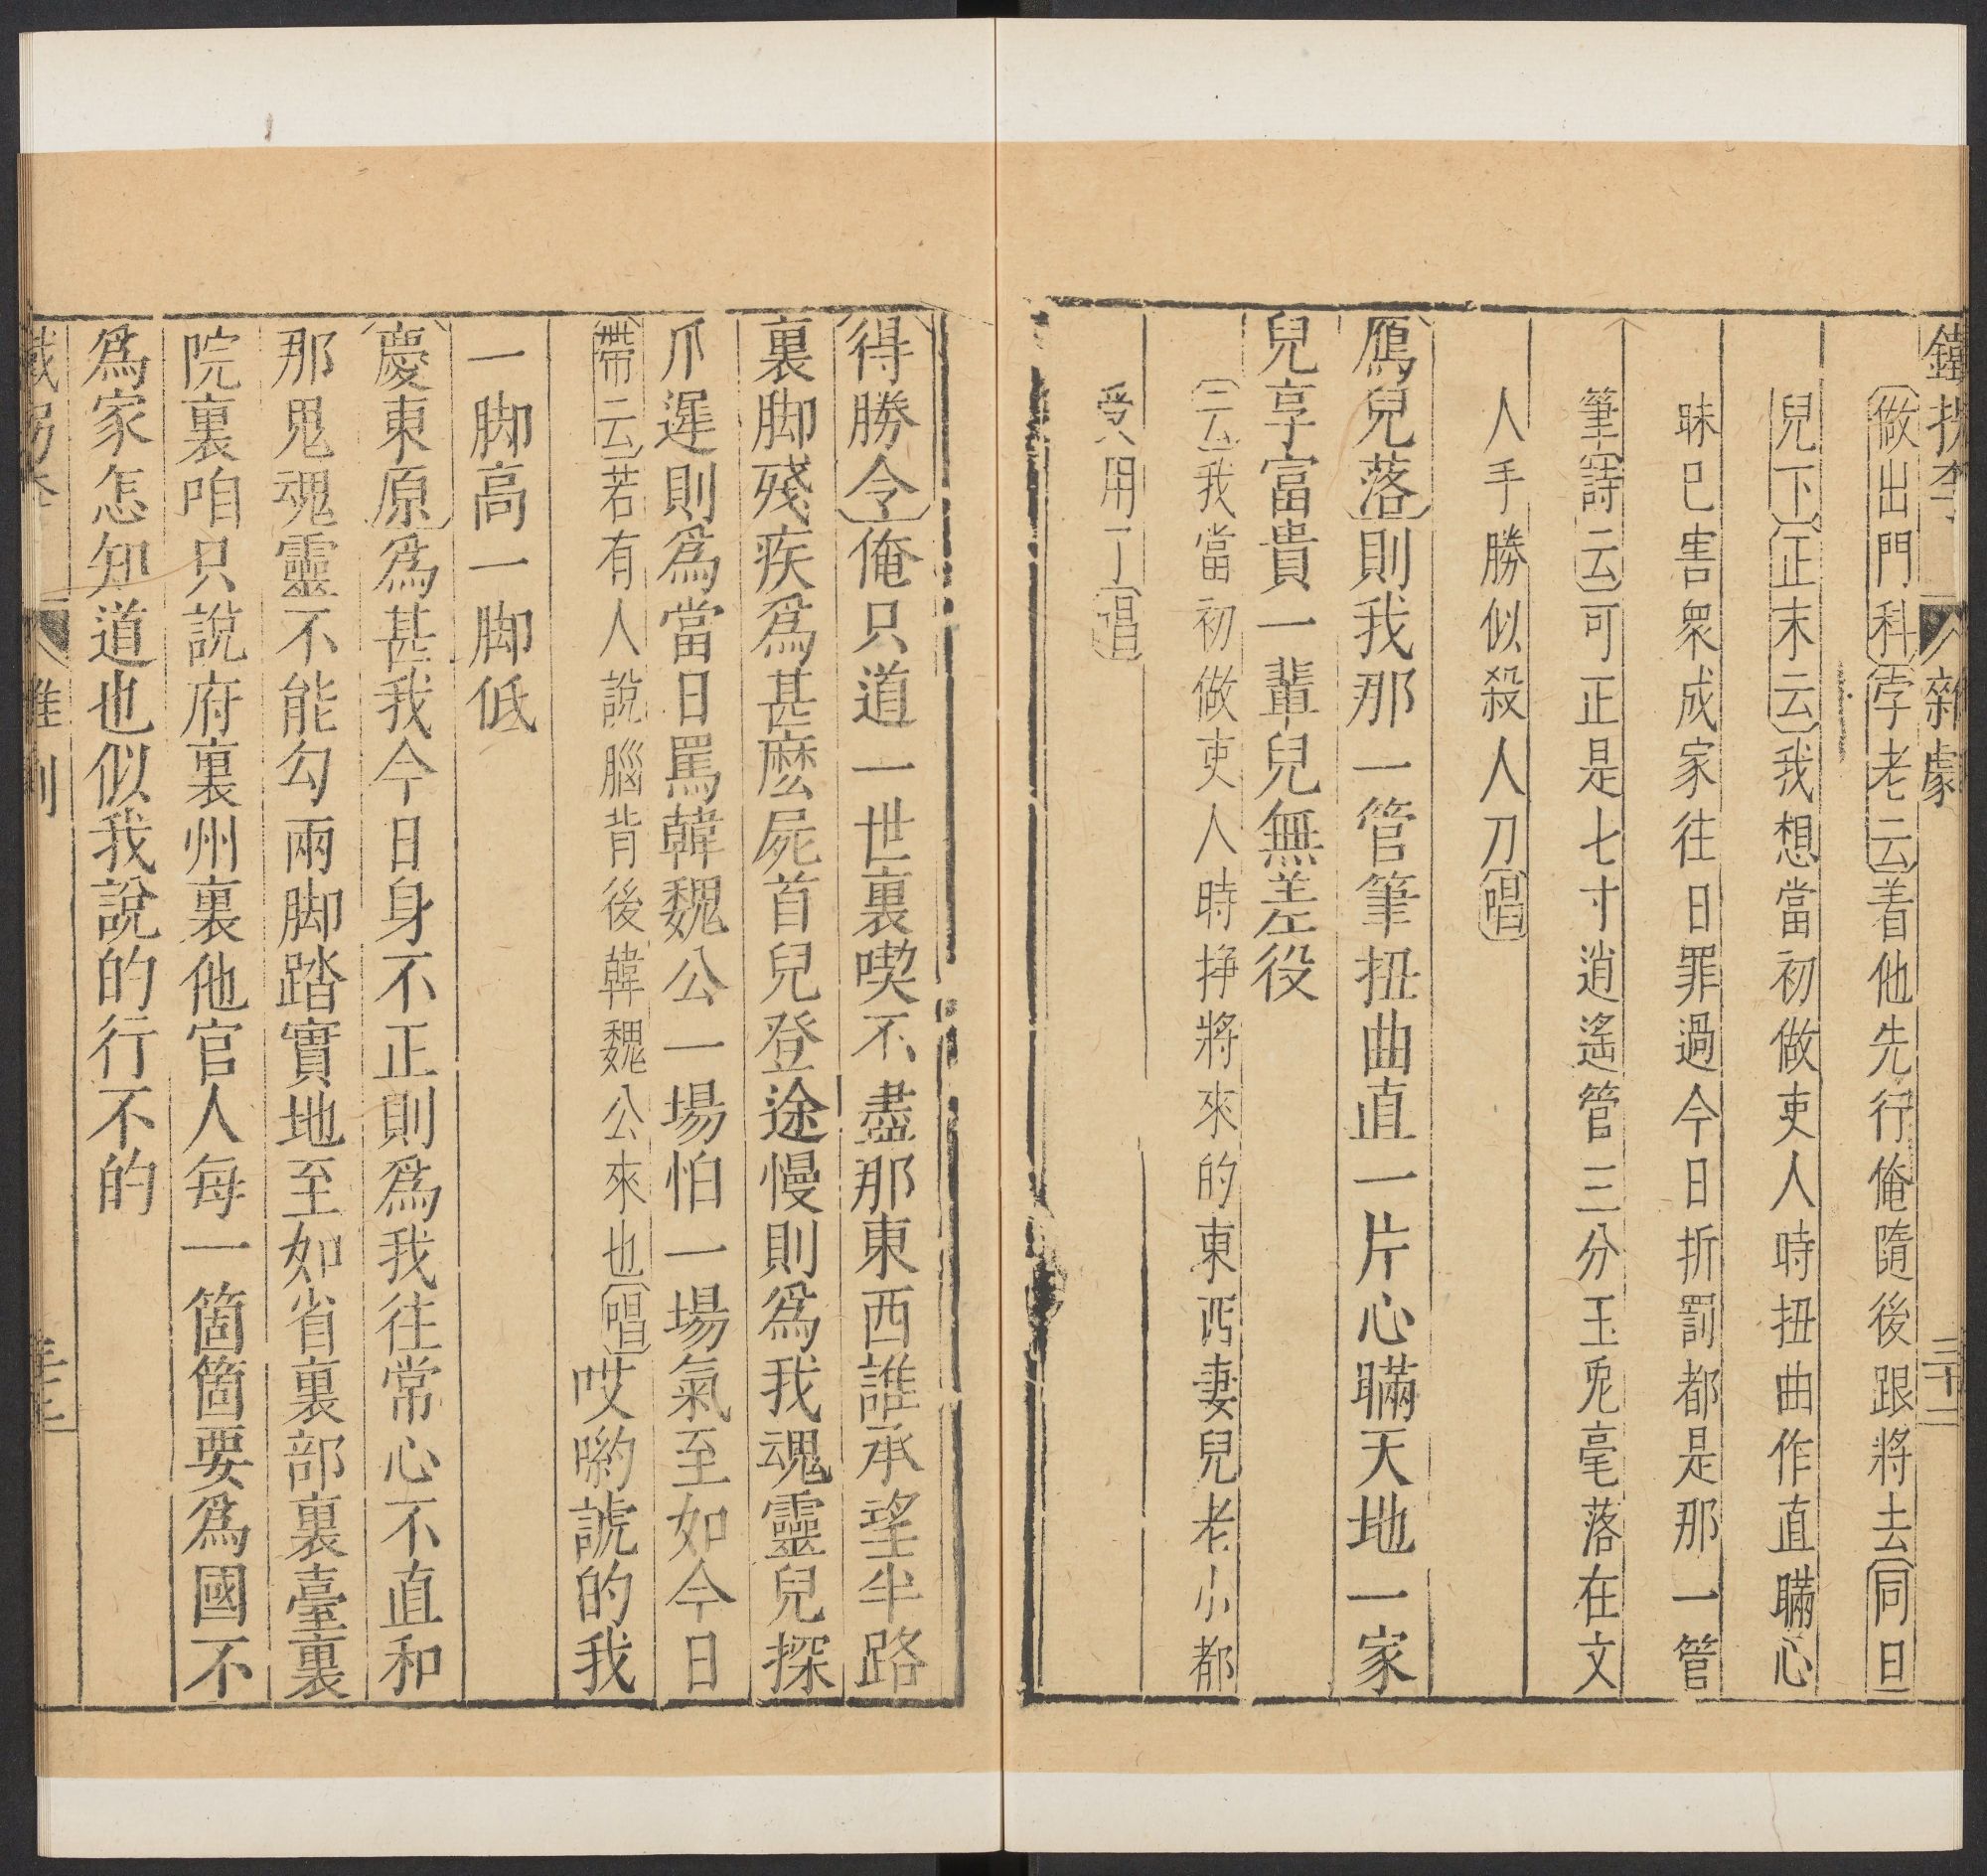 鐵拐李 雜劇 三十一
做出門科孛老云着他先行俺隨後跟將去同旦
兒下正末云我想當初做吏人時扭曲作直瞞心
昧己害衆成家往日罪過今日折罰都是那一管
筆詩云可正是七寸逍遙管三分玉兎毫落在文
人手勝似殺人刀唱
鴈兒落則我那一管筆扭曲直一片心瞞天地一家
兒享富貴一輩兒無差役
云我當初做吏人時掙將來的東西妻兒老小都
受用了唱
得勝令俺只道一世裏喫不盡那東西誰承望半路
裏脚殘疾爲甚麽屍首兒登途慢則爲我魂靈兒探
爪遲則爲當日罵韓魏公一場怕一場氣至如今日
帶云若有人說腦背後韓魏公來也唱哎喲諕的我
一脚高一脚低
慶東原爲甚我今日身不正則爲我往常心不直和
那鬼魂靈不能勾兩脚踏實地至如省裏部裏臺裏
院裏咱只說府裏州裏他官人每一箇箇要爲國不
爲家怎知道也似我說的行不的